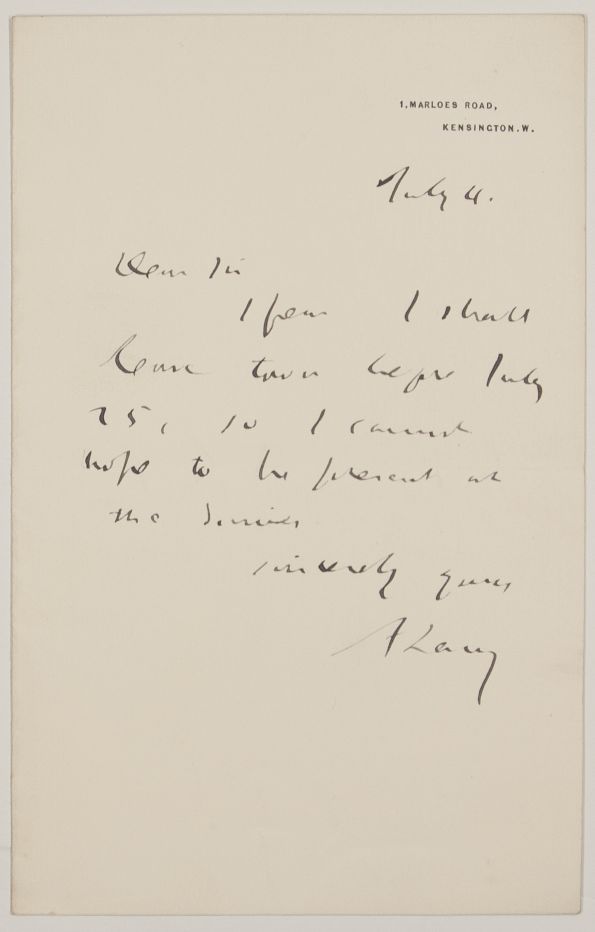 1, MARLOES ROAD,
KENSINGTON. W.
July 4.
Dear Sir
I fear I shall
leave town before July
25, so I cannot
hope to be present at
the Dinner
sincerely yours
A Lang